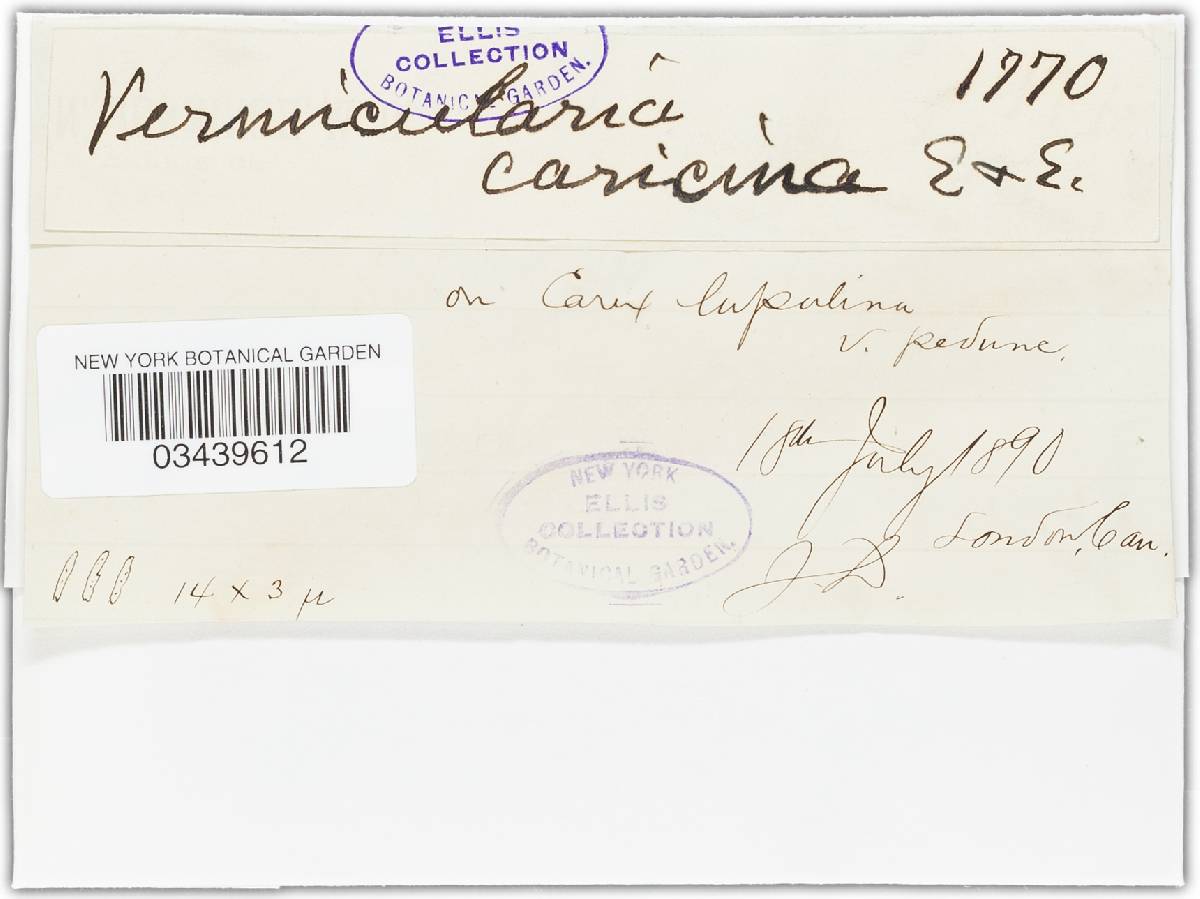 ELLIS
COLLECTION
BOTANICAL GARDEN.
1770
Vermicularia
caricina E & E.
on Carex lupulina
v. pedunc.
NEW YORK BOTANICAL GARDEN
03439612
18th July 1890
NEW YORK
ELLIS
COLLECTION
BOTANICAL GARDEN.
London, Can.
J. D.
14 x 3 µ